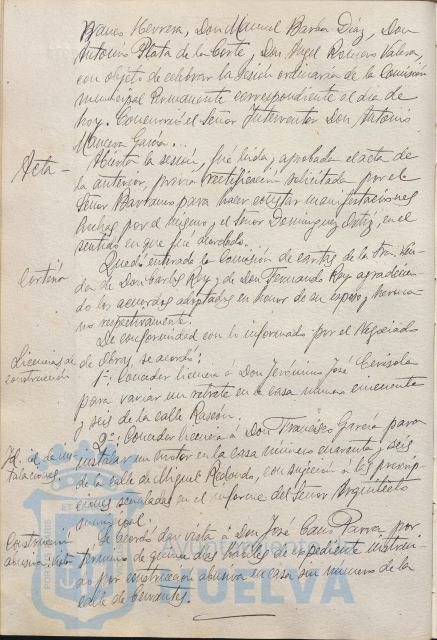 Herrera, Don Manuel Barba Diaz, Don
Antonio Plata de la Corte, Don Angel Romero Valera,
con objeto de celebrar la sesión ordinaria de la Comisión
municipal Permanente correspondiente al dia de
hoy. Concurrió el Señor Interventor Don Antonio
Garcia...
Acta - Abierta la sesión, fué leida y aprobada el acta de
la anterior, previa rectificación solicitada por el
Señor para hacer constar manifestaciones
hechas por el mismo, y el señor Dominguez Ortiz, en el
sentido en que fué acordado.
Cortesia Quedó enterada la Comisión de cartas de la
de Don Carlos Rey y de Don Fernando Rey agradecien-
do los acuerdos adoptados en honor de su esposo y herma-
no respectivamente.
De conformidad con lo informado por el Negociado
Licencias de construcción de Obras, se acordó:
1º: Conceder licencia á Don Jeronimo José
para variar un retrete en la casa número cincuenta
y seis de la calle Rascon.
Id. id. de instalaciones 2º: Conceder licencia á Don Francisco Garcia para
instalar un motor en la casa número cuarenta y seis
de la calle de Miguel Redondo, con sujeción á las prescrip-
ciones señaladas en el informe del Señor Arquitecto
municipal.
Construcción abusiva: Vista Se acordó dar vista á Don José Cano Parra por
término de quince dias habiles de expediente instrui-
do por construccion abusiva en casa sin número de la
calle de Cervantes.
HUELVA